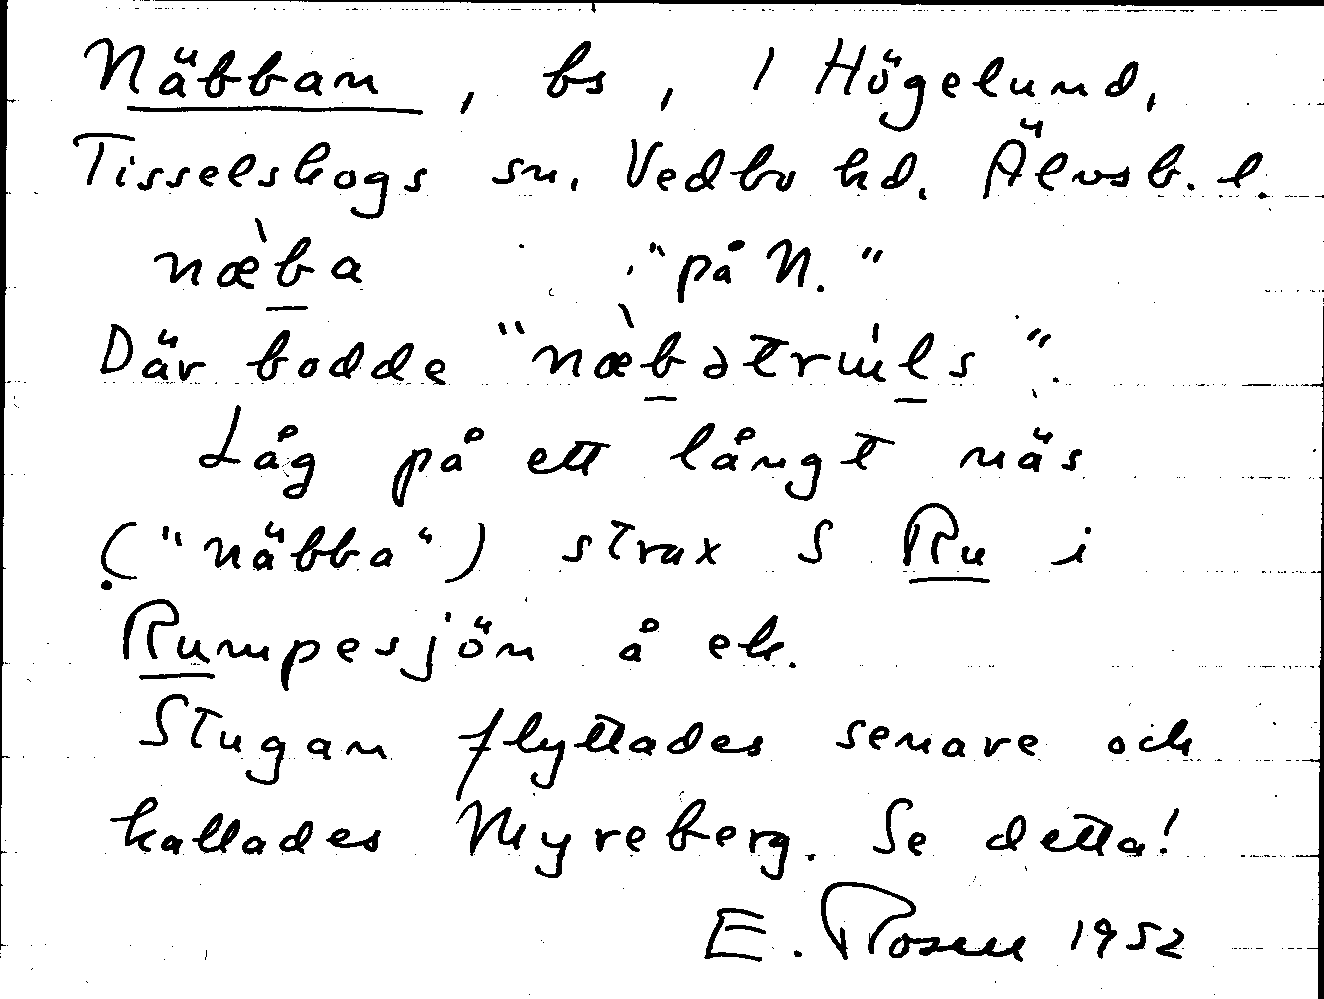 Näbban, bs, 1 Högelund,
Tisselskogs sn, Vedbo hd. Älvsb. l.
næ̀b̲a "på N."
Där bodde "næ̀b̲ətrúl̲s".
Låg på ett långt näs
("näbba") strax S Ru i
Rumpesjön å ek.
Stugan flyttades senare och
kallades Myreberg. Se detta!
E. Rosell 1952